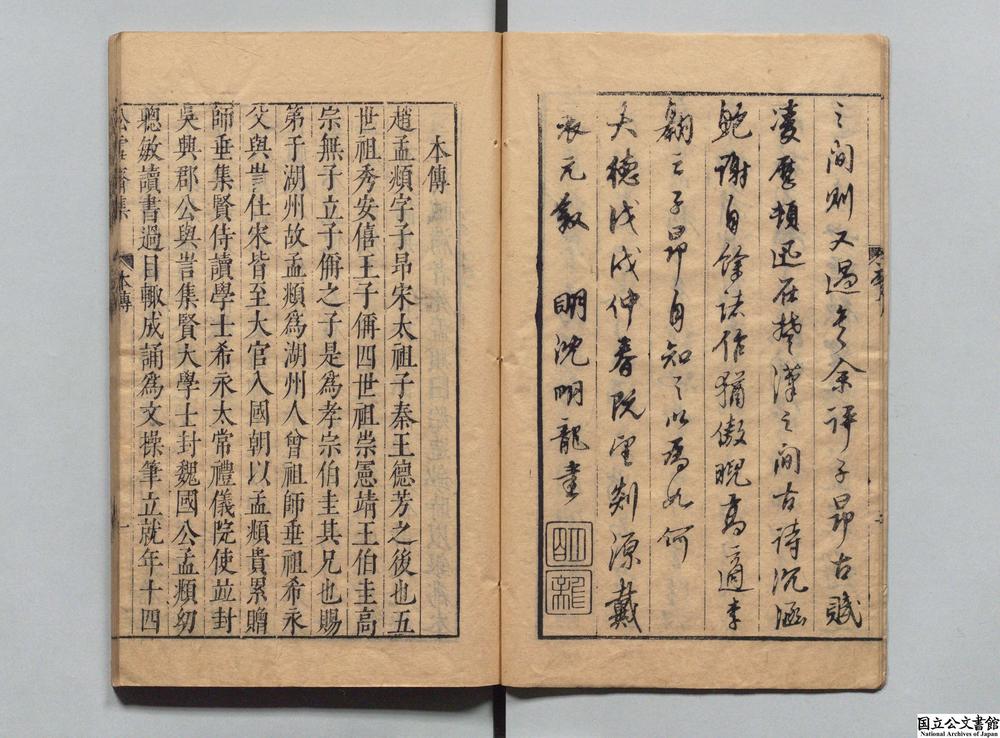 之間則又過之余評子昂古賦
凌厲頓迅在楚漢之間古詩沉涵
鮑謝自餘諸作猶傲睨高適李
翱云子昂自知之以為如何
大德戊戌仲春既望剡源戴
表元敘　明沈明龍書
明龍
本傳
趙孟頫字子昂宋太祖子秦王德芳之後也五
世祖秀安僖王子偁四世祖崇憲靖王伯圭高
宗無子立子偁之子是爲孝宗伯圭其兄也賜
第于湖州故孟頫爲湖州人曾祖師垂祖希永
父與訔仕宋皆至大官入國朝以孟頫貴累贈
師垂集賢侍讀學士希永太常禮儀院使並封
吳興郡公與訔集賢大學士封魏國公孟頫幼
聰敏讀書過目輙成誦爲文操筆立就年十四
松雪齋集　本傳　一
国立公文書館
National Archives of Japan